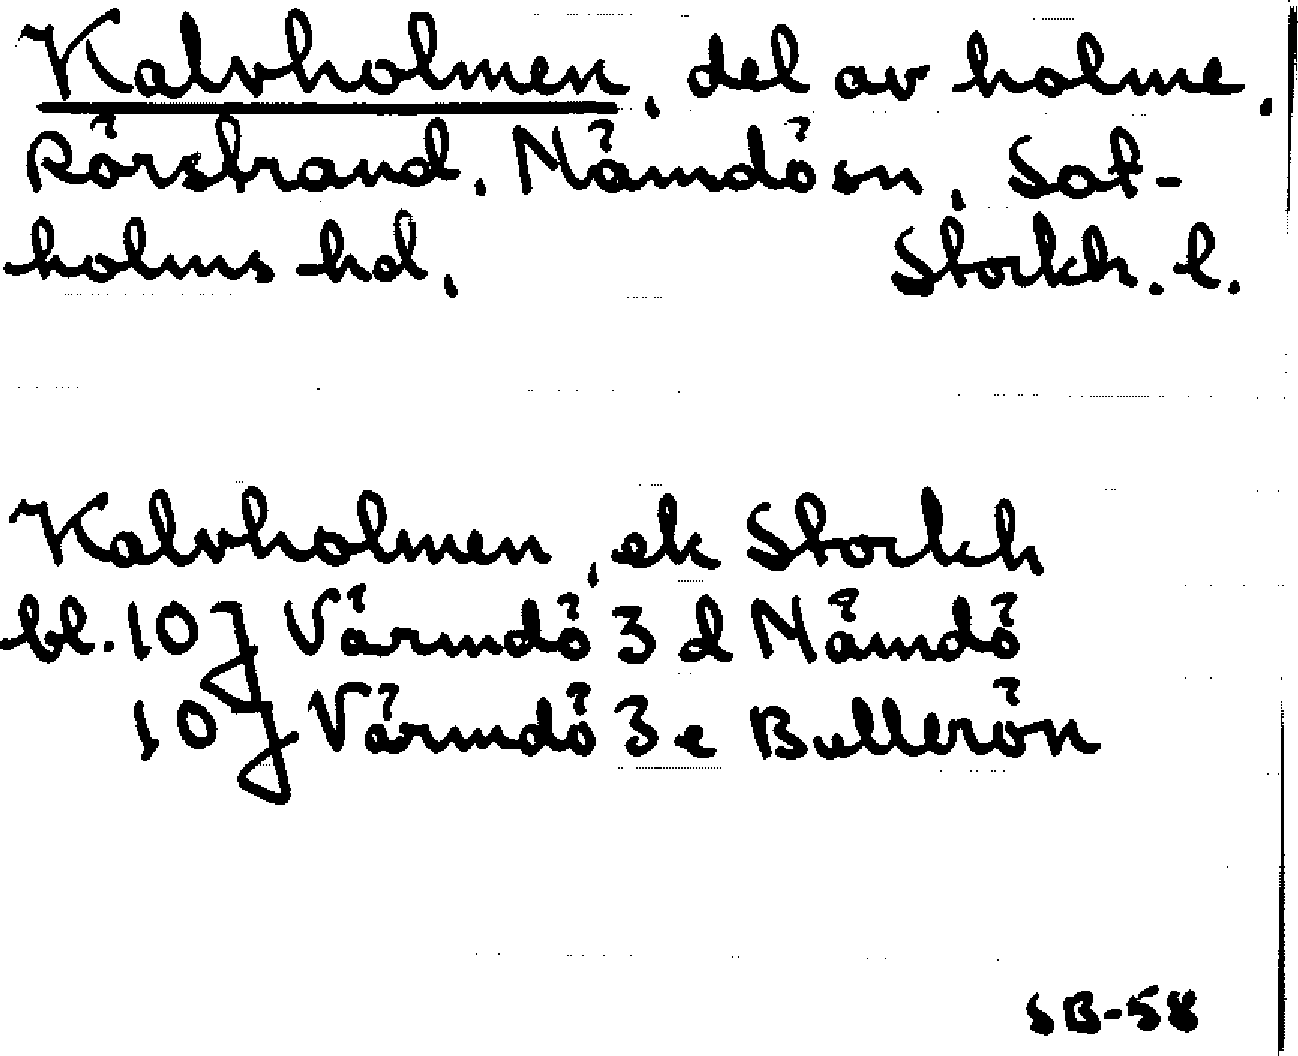 Kalvholmen, del av holme,
Rörstrand, Nämdö sn, Sot-
holms hd, Stockh. l.
Kalvholmen, ek Stockh
bl. 10J Värmdö 3 d Nämdö
10J Värmdö 3 e Bullerön
SB-58